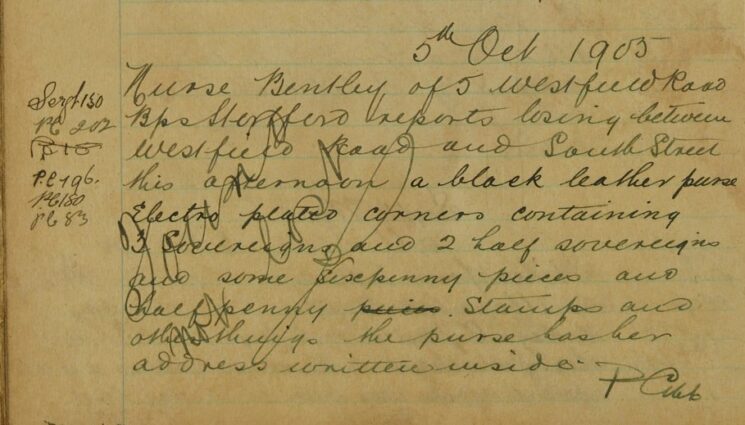 5th Oct 1905
Sergt 130
PC 202
P.C 196.
PC 180
PC 83
Nurse Bentley of 5 Westfield Road
Bps Stortford reports losing between
Westfield Road and South Street
this afternoon a black leather purse
Electro plated corners containing
3 Sovereigns and 2 half sovereigns
and some sixpenny pieces and
halfpenny pieces. Stamps and
other things the purse has her
address written inside.
not lost